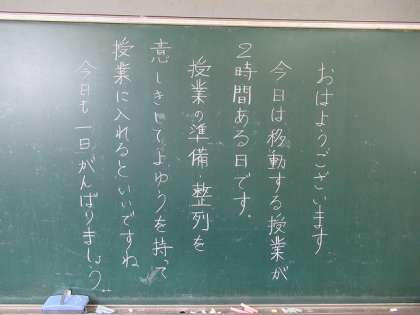 おはようございます
今日は移動する授業が
2時間ある日です。
授業の準備・整列を
意しきしてよゆうを持って
授業に入れるといいですね
今日も一日がんばりましょう